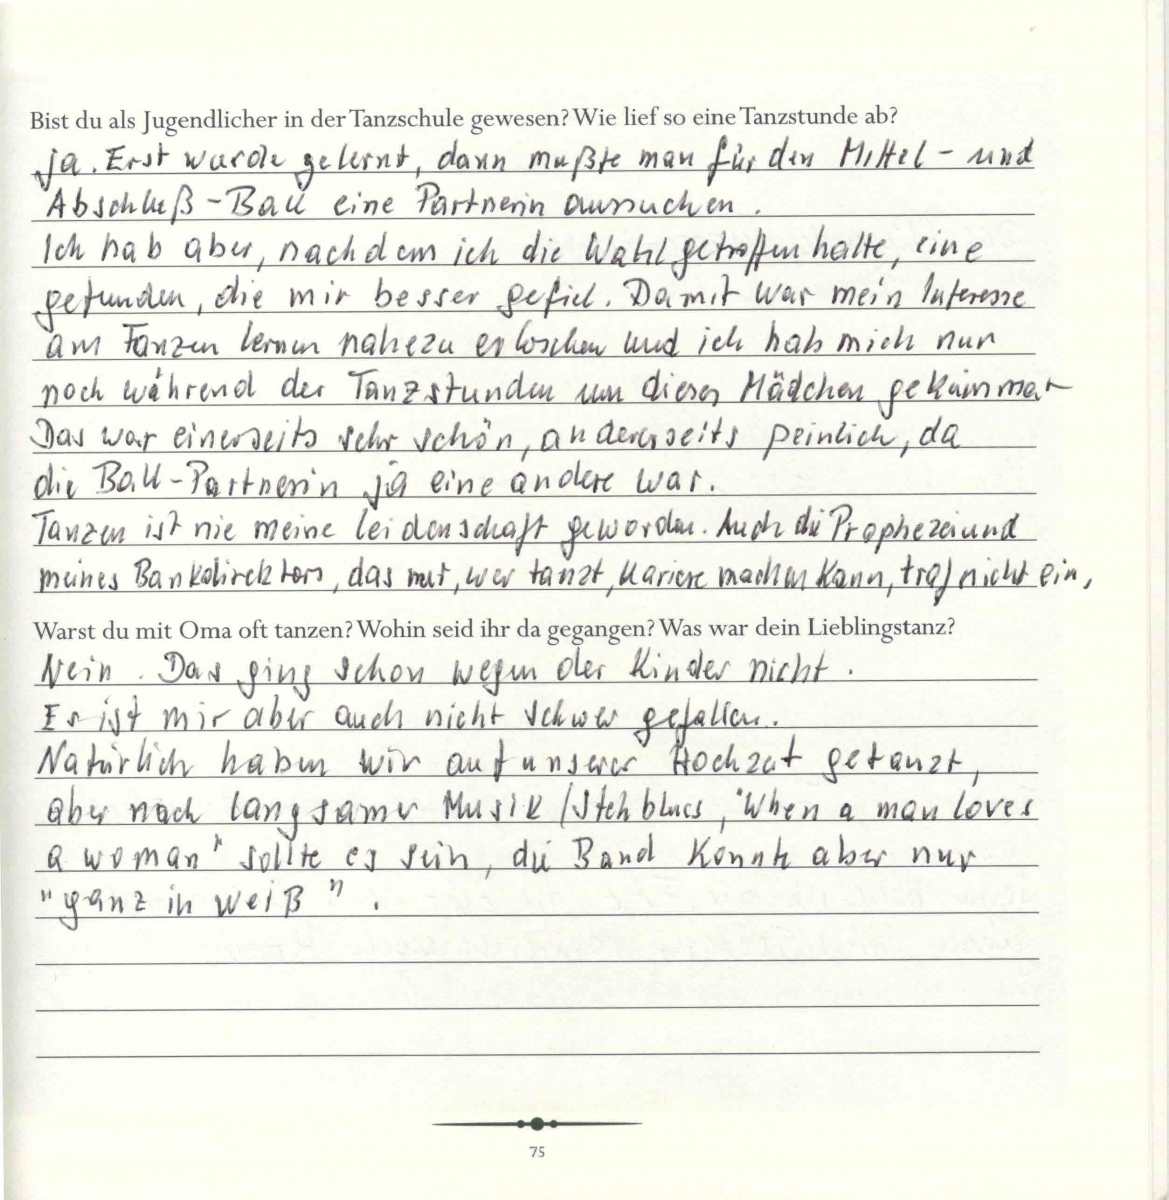 Bist du als Jugendlicher in der Tanzschule gewesen? Wie lief so eine Tanzstunde ab?
ja. Erst wurde gelernt, dann mußte man für den Mittel- und
Abschluß-Ball eine Partnerin aussuchen.
Ich hab aber, nachdem ich die Wahl getroffen hatte, eine
gefunden, die mir besser gefiel. Damit war mein Interesse
am Tanzen lernen nahezu erloschen und ich hab mich nur
noch während der Tanzstunden um dieses Mädchen gekümmert
Das war einerseits sehr schön, andererseits peinlich, da
die Ball-Partnerin ja eine andere war.
Tanzen ist nie meine Leidenschaft geworden. Auch die Prophezeiund
meines Bankdirektors, das nur, wer tanzt, Kariere machen kann, traf nicht ein,
Warst du mit Oma oft tanzen? Wohin seid ihr da gegangen? Was war dein Lieblingstanz?
Nein. Das ging schon wegen der Kinder nicht.
Es ist mir aber auch nicht schwer gefallen.
Natürlich haben wir auf unserer Hochzeit getanzt,
aber nach langsamer Musik / Stehblues, "When a man loves
a woman" sollte es sein, die Band konnte aber nur
"ganz in weiß".
75